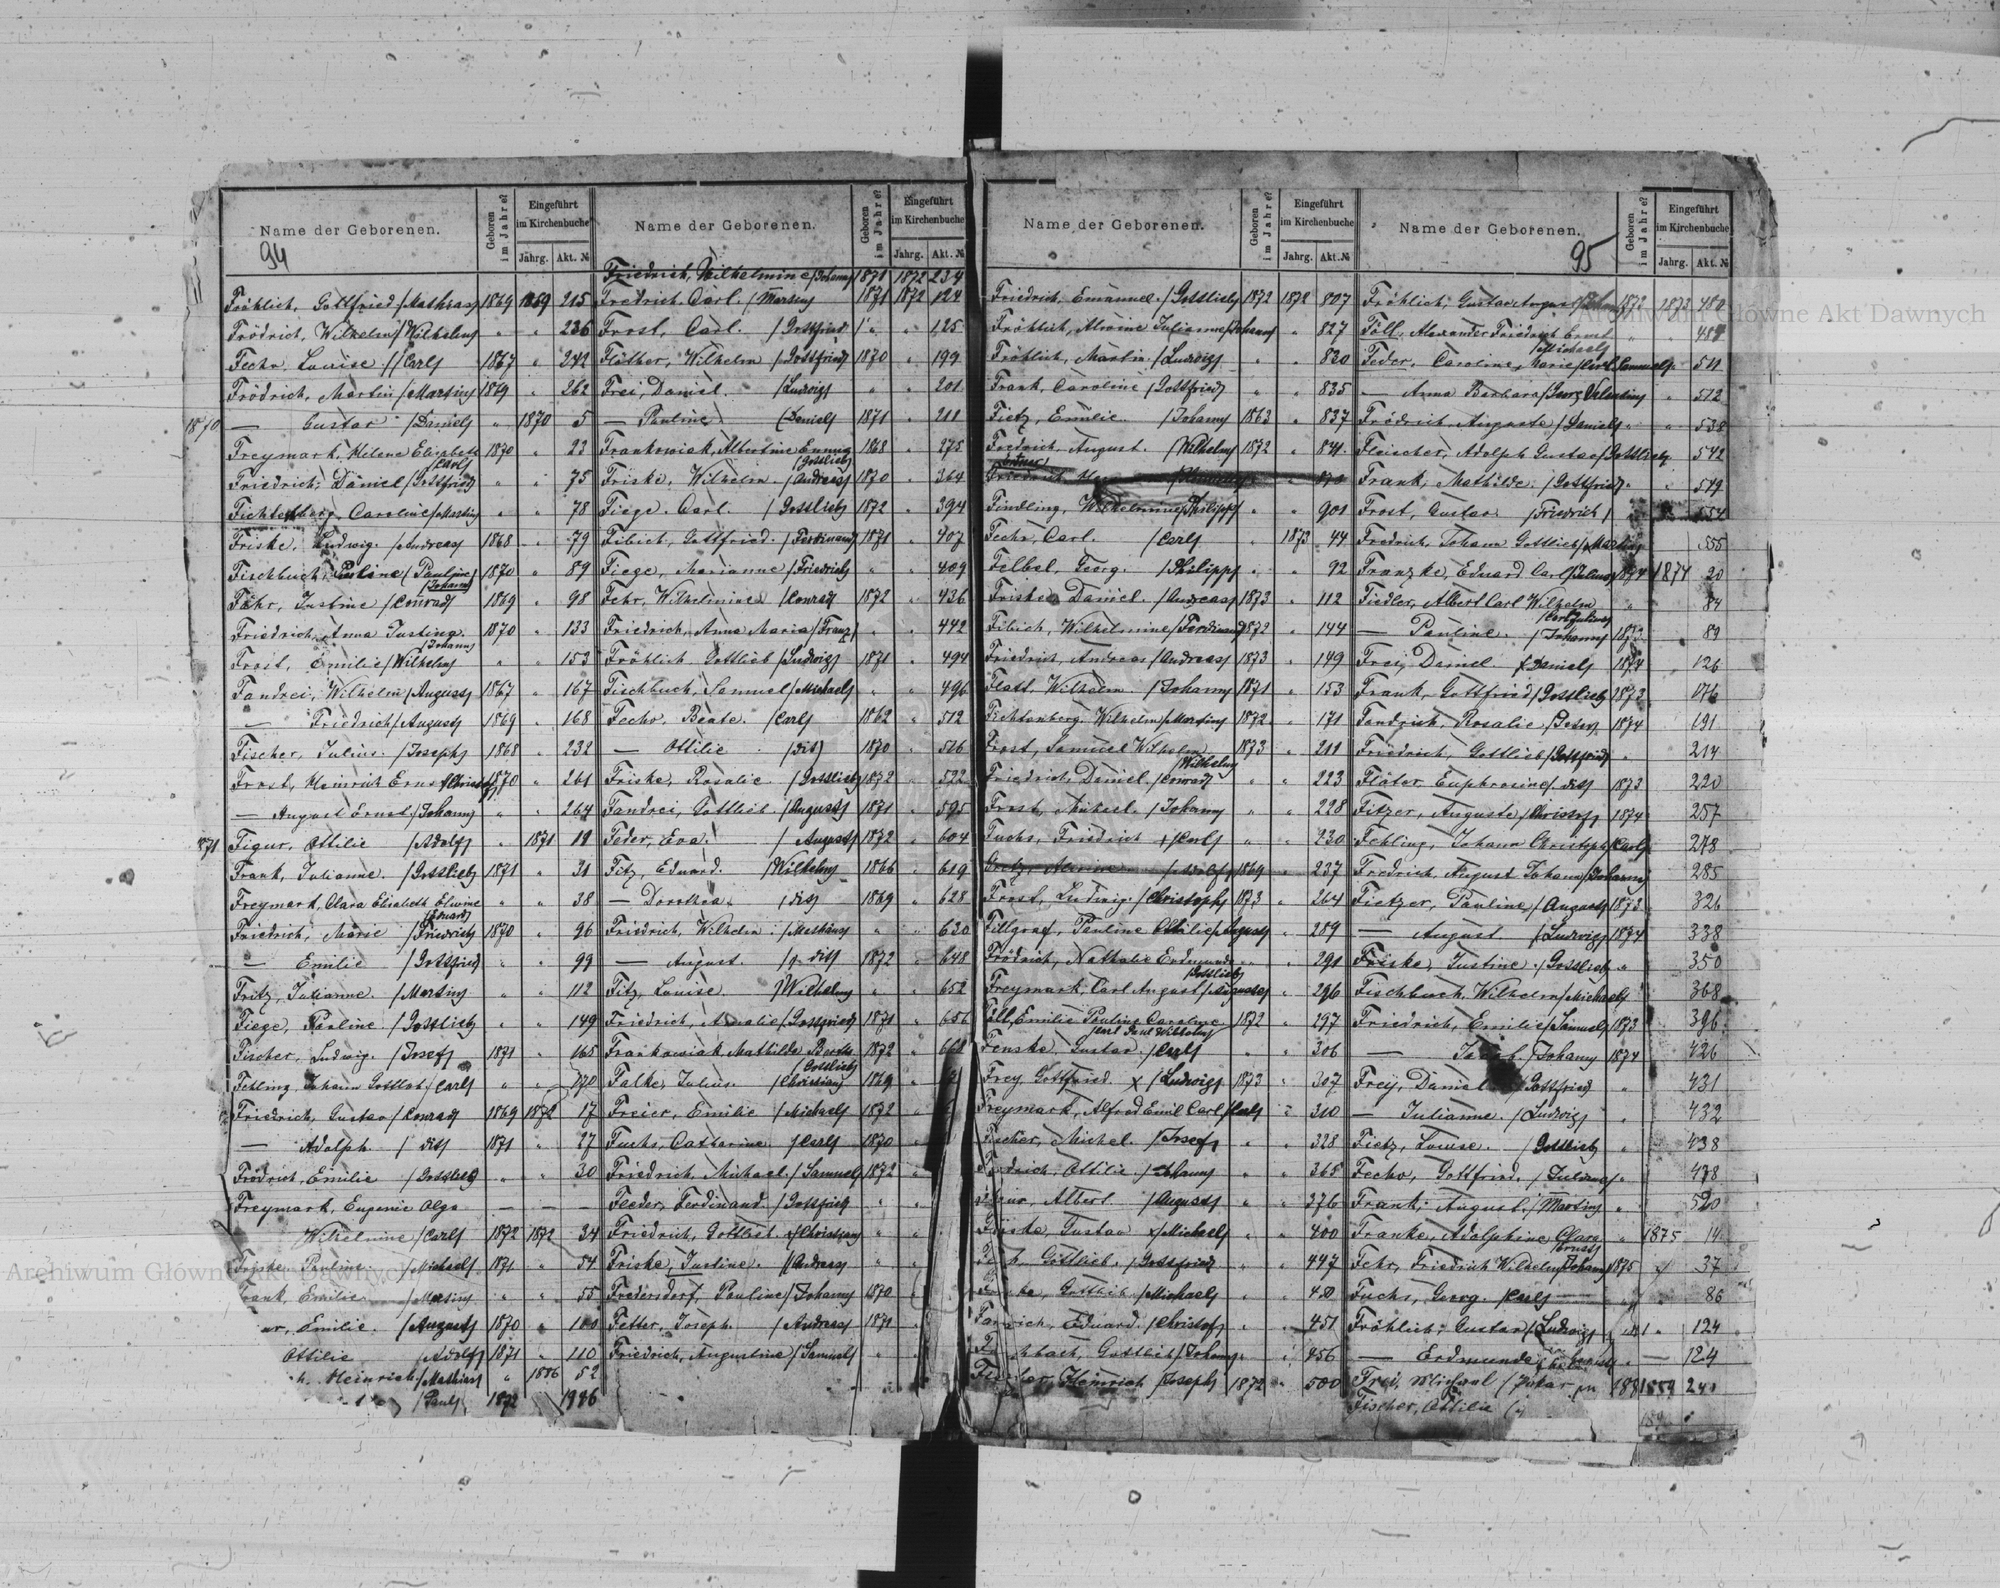 Name der Geborenen.
94
Geboren im Jahre?
Eingeführt im Kirchenbuche
Jahrg.
Akt. №
Fröhlich, Gottfried /Mathias/ 1869 1869 215
Frödrich, Wilhelm /Wilhelm/ " " 236
Fecho, Louise /Carl/ 1867 " 242
Frödrich, Martin /Martin/ 1869 " 262
1870 — Gustav /Daniel/ " 1870 5
Freymark, Helene Elisabeth /Carl/ 1870 " 23
Friedrich, Daniel /Gottfried/ " " 75
Fichtenberg, Caroline /Martin/ " " 78
Friske, Ludwig /Andreas/ 1868 " 79
Fischbuch, Pauline /Johann/ 1870 " 89
Fähr, Justine /Conrad/ 1869 " 98
Friedrich, Anna Justina /Johann/ 1870 " 133
Frost, Emilie /Wilhelm/ " " 153
Fandrei, Wilhelm /August/ 1867 " 167
— Friedrich /August/ 1869 " 168
Fischer, Julius /Joseph/ 1868 " 232
Frost, Heinrich Ernst 1870 " 261
— August Ernst /Johann/ " " 264
Figur, Ottilie /Adolf/ " 1871 19
Frank, Julianne /Gottlieb/ 1871 " 31
Freymark, Clara Elisabeth Elwine /Eduard/ " " 38
Friedrich, Marie /Friedrich/ 1870 " 96
— Emilie /Gottfried/ " " 99
Fritz, Julianne /Martin/ " " 112
Fiege, Pauline /Gottlieb/ " " 149
Fischer, Ludwig /Josef/ 1871 " 165
Fehling, Johann Gottlob /Carl/ " " 170
Friedrich, Gustav /Conrad/ 1869 1872 17
— Adolph /dit/ 1871 " 27
Frödrich, Emilie /Gottlieb/ " " 30
Freymark, Eugenie Olga — — —
Wilhelmine /Carl/ 1872 1872 34
Friske, Pauline /Michael/ 1871 " 54
Frank, Emilie /Martin/ " " 55
Emilie /August/ 1870 " 100
Ottilie /Adolf/ 1871 " 110
Heinrich /Mathias/ " 1886 52
/Paul/ 1872
Name der Geborenen.
Geboren im Jahre?
Eingeführt im Kirchenbuche
Jahrg.
Akt. №
Friedrich, Wilhelmine /Johann/ 1871 1872 234
Fredrich, Carl /Martin/ 1871 1872 124
Frost, Carl /Gottfried/ " " 125
Fläther, Wilhelm /Gottfried/ 1870 " 199
Frei, Daniel /Ludwig/ " " 201
— Pauline /Daniel/ 1871 " 211
Frankowiak, Albertine Emma /Gottlieb/ 1868 " 275
Friske, Wilhelm /Andreas/ 1870 " 364
Fiege, Carl /Gottlieb/ 1872 " 394
Filbich, Gottfried /Ferdinand/ 1871 " 407
Fiege, Marianne /Friedrich/ " " 409
Fehr, Wilhelmine /Conrad/ 1872 " 436
Friedrich, Anna Maria /Franz/ " " 442
Fröhlich, Gottlieb /Ludwig/ 1871 " 494
Fischbuch, Samuel /Michael/ " " 496
Fecho, Beate /Carl/ 1862 " 512
— Ottilie /dit/ 1870 " 516
Friske, Rosalie /Gottlieb/ 1872 " 522
Fandrei, Gottlieb /August/ 1871 " 595
Feder, Eva /August/ 1872 " 604
Fitz, Eduard /Wilhelm/ 1866 " 619
— Dorothea /dit/ 1869 " 628
Friedrich, Wilhelm /Mathäus/ " " 630
— August /dit/ 1872 " 648
Fitz, Louise /Wilhelm/ " " 652
Friedrich, Amalie /Gottfried/ 1871 " 656
Frankowiak, Mathilde Bertha /Gottlieb/ 1872 "
Falke, Julius /Christian/ 1869 "
Freier, Emilie /Michael/ 1872 "
Fuchs, Catharine /Carl/ 1870 "
Friedrich, Michael /Samuel/ 1872 "
Feeder, Ferdinand /Gottfried/ " "
Friedrich, Gottlieb /Christian/ " "
Friske, Justine /Andreas/ " "
Fredersdorf, Pauline /Johann/ 1870 "
Fetter, Joseph /Andreas/ 1871 "
Friedrich, Augustine /Samuel/ " "
Name der Geborenen.
Geboren im Jahre?
Eingeführt im Kirchenbuche
Jahrg.
Akt. №
Friedrich, Emanuel /Gottlieb/ 1872 1872 807
Fröhlich, Alwine Julianne /Johann/ " " 827
Fröhlich, Martin /Ludwig/ " " 830
Frank, Caroline /Gottfried/ " " 835
Fietz, Emilie /Johann/ 1863 " 837
Fredrich, August /Wilhelm/ 1872 " 841
Findling, Wilhelmine /Philipp/ " " 901
Fecho, Carl /Carl/ " 1873 44
Felbel, Georg /Philipp/ " " 92
Friske, Daniel /Andreas/ 1873 " 112
Filbich, Wilhelmine /Ferdinand/ 1872 " 144
Friedrich, Andreas /Andreas/ 1873 " 149
Flatt, Wilhelm /Johann/ 1871 " 153
Fichtenberg, Wilhelm /Martin/ 1872 " 171
Frost, Samuel Wilhelm /Wilhelm/ 1873 " 211
Friedrich, Daniel /Conrad/ " " 223
Frost, Michael /Johann/ " " 228
Fuchs, Friedrich /Carl/ " " 230
/Adolf/ 1869 " 237
Frost, Ludwig /Christoph/ 1873 " 264
Fillgraf, Pauline Ottilie /August/ " 289
Frödrich, Nathalie Erdmunde /Gottlieb/ " " 291
Freymark, Carl August /August/ " 296
Föll, Emilie Pauline Caroline /Carl Paul Wilhelm/ 1872 " 297
Fenske, Gustav /Carl/ " " 306
Frey, Gottfried x /Ludwig/ 1873 " 307
Freymark, Alfred Emil Carl /Carl/ " 310
Fischer, Michel /Josef/ " " 328
Frödrich, Ottilie /Johann/ " " 365
Albert /August/ " " 376
Friske, Gustav /Michael/ " " 400
Gottlieb /Gottfried/ " " 447
Gottlieb /Michael/ " "
Eduard /Christof/ " " 451
Gottlieb /Johann/ " " 456
Heinrich /Joseph/ 1872 " 500
Name der Geborenen.
95
Geboren im Jahre?
Eingeführt im Kirchenbuche
Jahrg.
Akt. №
Fröhlich, Gustav August 1872 1873 480
Föll, Alexander Friedrich Ernst /Michael/ " "
Feder, Caroline Marie /Carl Samuel/ " 511
— Anna Barbara /Georg Valentin/ " 512
Frödrich, Auguste /Daniel/ " " 538
Fleischer, Adolph Gustav /Gottlieb/ " 542
Frank, Mathilde /Gottfried/ " " 549
Frost, Gustav /Friedrich/ " " 554
Fredrich, Johann Gottlieb /Martin/ 555
Franzke, Eduard Carl /Julius/ 1874 1874 20
Fiedler, Albert Carl Wilhelm /Carl Julius/ " 84
— Pauline /Johann/ 1873 89
Frei, Daniel /Daniel/ 1874 126
Frank, Gottfried /Gottlieb/ 1873 176
Fandrich, Rosalie /Peter/ 1874 191
Friedrich, Gottlieb /Gottfried/ " 214
Fläter, Euphrosine /dit/ 1873 220
Fitzer, Auguste /Christof/ 1874 257
Fehling, Johann Christoph /Carl/ 278
Fredrich, August Johann /Johann/ 285
Fietzer, Pauline /August/ 1873 326
— August /Ludwig/ 1874 338
Friske, Justine /Gottlieb/ " 350
Fischbuch, Wilhelm /Michael/ " 368
Friedrich, Emilie /Samuel/ 1873 396
— Jacob /Johann/ 1874 426
Frey, Daniel /Gottfried/ " 431
— Julianne /Ludwig/ " 432
Fietz, Louise /Gottlieb/ " 438
Fecho, Gottfried /Julius/ " 478
Frank, August /Martin/ " 520
Franke, Adolphine Clara /Ernst/ 1875 14
Fehr, Friedrich Wilhelm /Johann/ 1875 " 37
Fuchs, Georg /Carl/ " " 86
Fröhlich, Gustav /Ludwig/ " 124
— Erdmunde — 124
Frei, Michael 1889
Fischer, Ottilie
Archiwum Główne Akt Dawnych
Archiwum Główne Akt Dawnych